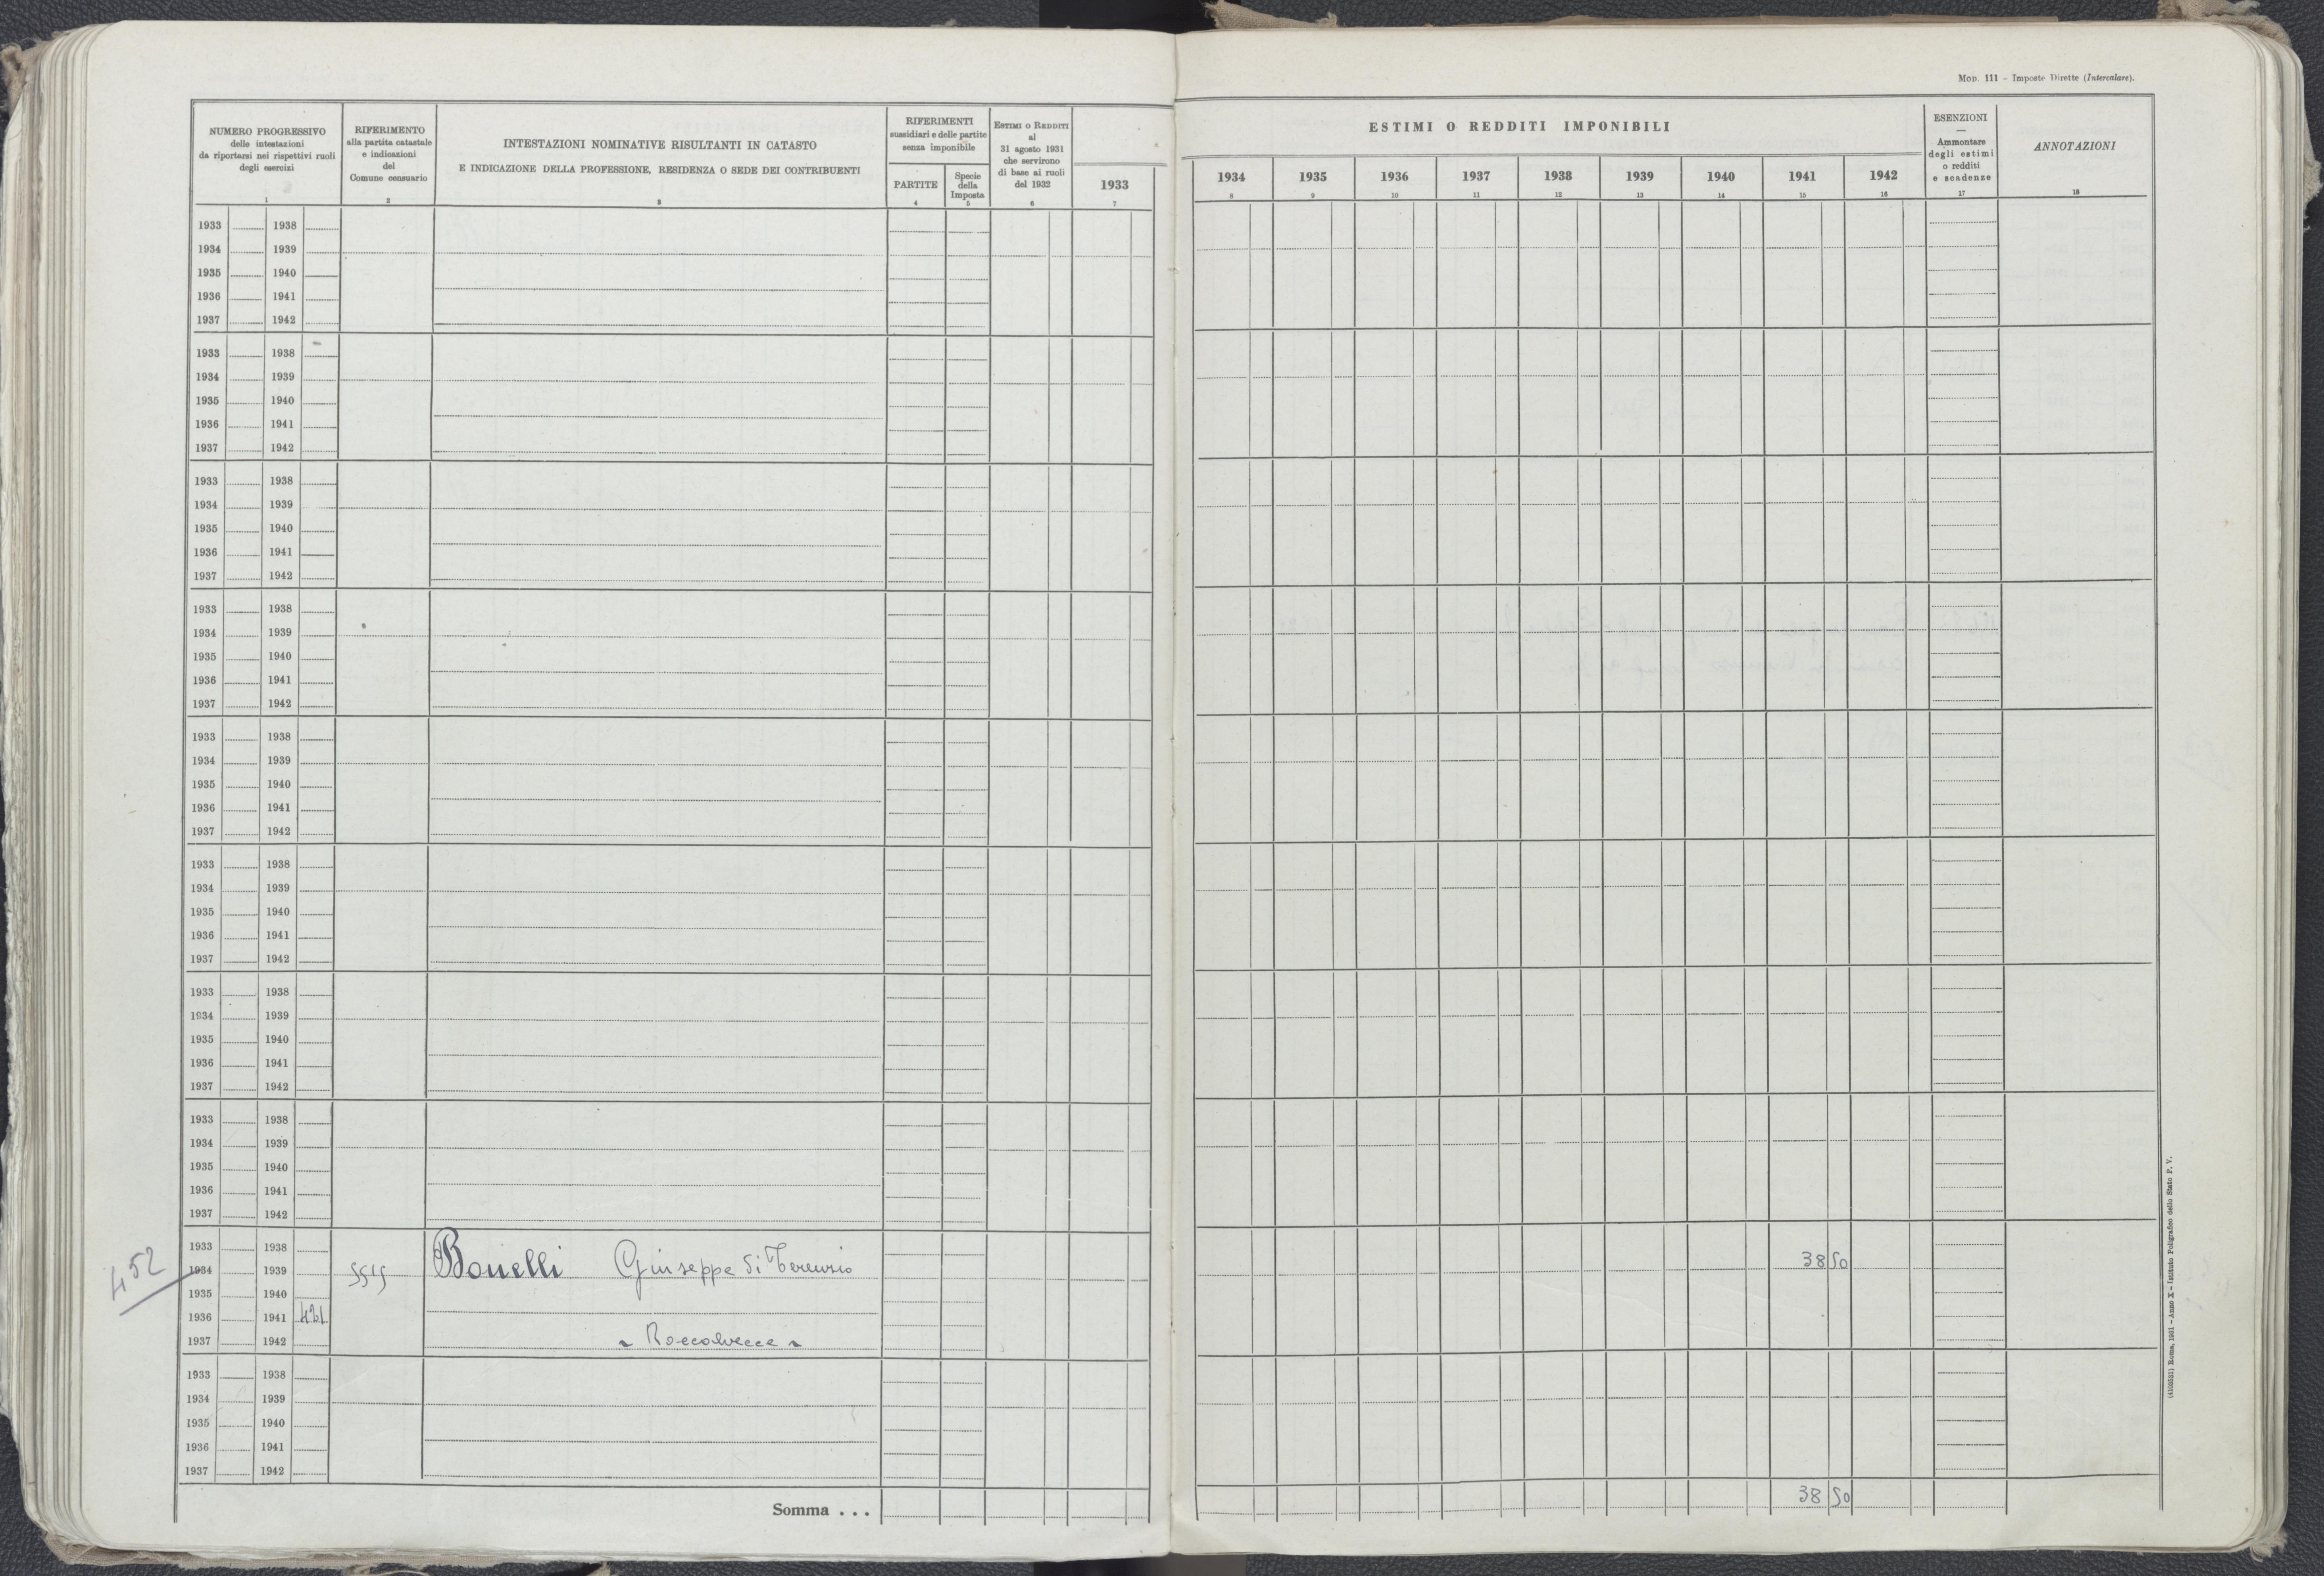 Mod. 111 - Imposte Dirette (Intercalare).
NUMERO PROGRESSIVO
delle intestazioni
da riportarsi nei rispettivi ruoli
degli esercizi
1
RIFERIMENTO
alla partita catastale
e indicazioni
del
Comune censuario
2
INTESTAZIONI NOMINATIVE RISULTANTI IN CATASTO
E INDICAZIONE DELLA PROFESSIONE, RESIDENZA O SEDE DEI CONTRIBUENTI
3
RIFERIMENTI
sussidiari e delle partite
senza imponibile
PARTITE
4
Specie
della
Imposta
5
ESTIMI O REDDITI
al
31 agosto 1931
che servirono
di base ai ruoli
del 1932
6
1933
7
ESTIMI O REDDITI IMPONIBILI
1934 1935 1936 1937 1938 1939 1940 1941 1942
8 9 10 11 12 13 14 15 16
ESENZIONI
—
Ammontare
degli estimi
o redditi
e scadenze
17
ANNOTAZIONI
18
1933 1938
1934 1939
1935 1940
1936 1941
1937 1942
1933 1938
1934 1939
1935 1940
1936 1941
1937 1942
1933 1938
1934 1939
1935 1940
1936 1941
1937 1942
1933 1938
1934 1939
1935 1940
1936 1941
1937 1942
1933 1938
1934 1939
1935 1940
1936 1941
1937 1942
1933 1938
1934 1939
1935 1940
1936 1941
1937 1942
1933 1938
1934 1939
1935 1940
1936 1941
1937 1942
1933 1938
1934 1939
1935 1940
1936 1941
1937 1942
452
1933 1938
1934 1939 Bonelli Giuseppe di Terenzio 38 50
1935 1940
1936 1941 421
1937 1942
1933 1938
1934 1939
1935 1940
1936 1941
1937 1942
Somma . . . 38 50
Roma, 1931 - Anno X - Istituto Poligrafico dello Stato P. V.